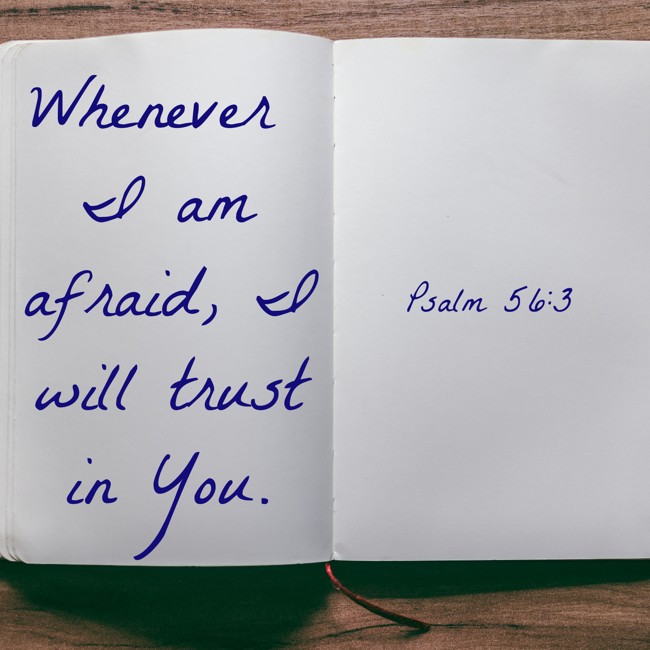 Whenever
I am
afraid, I
will trust
in You.
Psalm 56:3